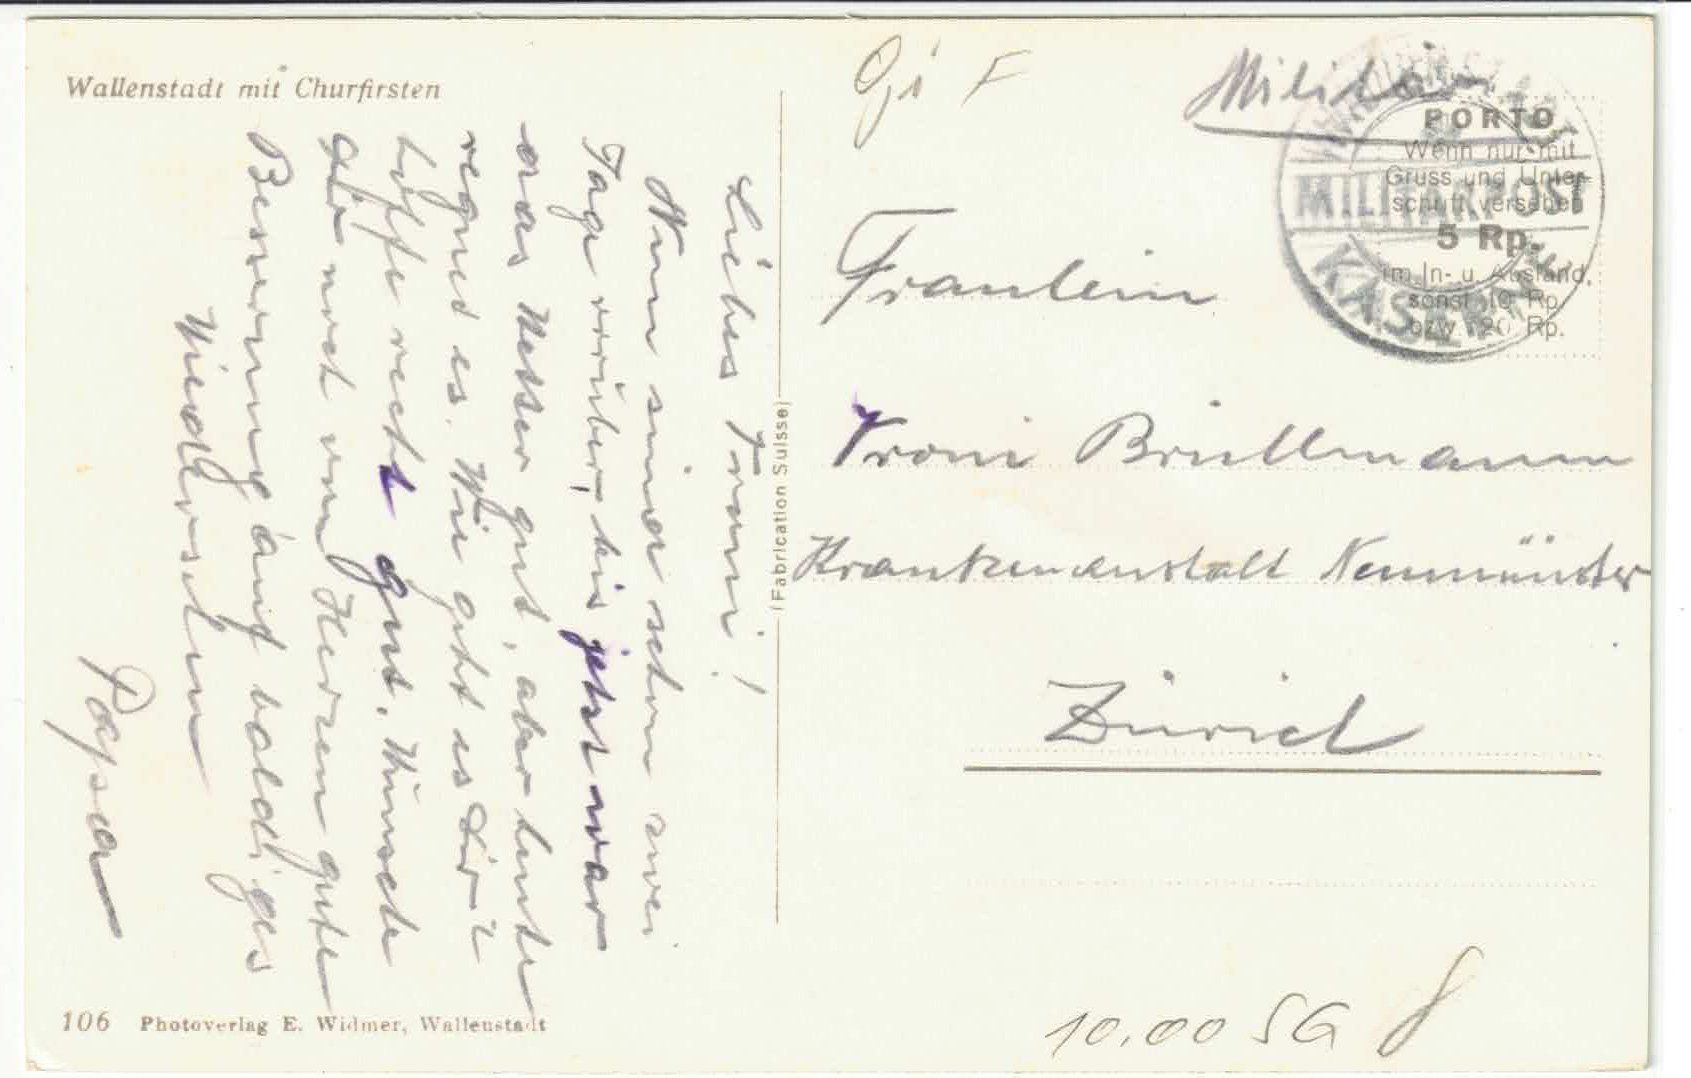 Wallenstadt mit Churfirsten
Liebes Vroni!
Nun sind schon zwei
Tage vorüber, bis jetzt war
das Wetter gut, aber heute
regnet es. Wie geht es Dir?
hoffe recht gut. Wünsche
Dir noch von Herzen gute
Besserung auf baldiges
Wiedersehen
Papa
106 Photoverlag E. Widmer, Wallenstadt
(Fabrication Suisse)
F
Militär
PORTO
Wenn nur mit
Gruss und Unter-
schrift versehen
5 Rp.
im In- u. Ausland,
sonst 10 Rp.
bzw. 20 Rp.
MILITÄRPOST
KASERNE
Fräulein
Vroni Brüllmann
Krankenanstalt Neumünster
Zürich
10.00 SG